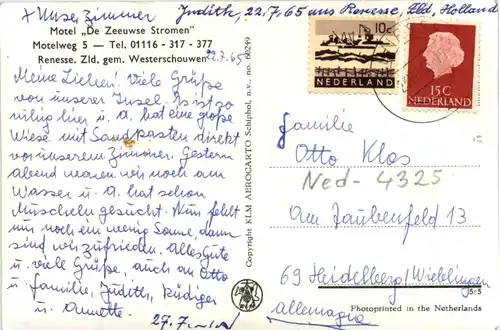 x Unser Zimmer
Judith, 22.7.65 aus Renesse, Zld, Holland
Motel „De Zeeuwse Stromen"
Motelweg 5 — Tel. 01116 - 317 - 377
Renesse. Zld. gem. Westerschouwen
22.7.65
Meine Lieben! Viele Grüße
von unserer Insel. Es ist so
ruhig hier u. A. hat eine große
Wiese mit Sandkasten direkt
vor unserem Zimmer. Gestern
abend waren wir noch am
Wasser u. A. hat schon
Muscheln gesucht. Nun fehlt
uns noch ein wenig Sonne, dann
sind wir zufrieden. Alles Gute
u. viele Grüße, auch an Otto
u. Familie, Judith, Rüdiger
u. Annette.
27.7.
Copyright KLM AEROCARTO Schiphol, n.v., no. 60249
10c
NEDERLAND
15C
NEDERLAND
Familie
Otto Klos
Ned- 4325
Am Taubenfeld 13
69 Heidelberg/Wieblingen
Allemagne
S+S
Photoprinted in the Netherlands